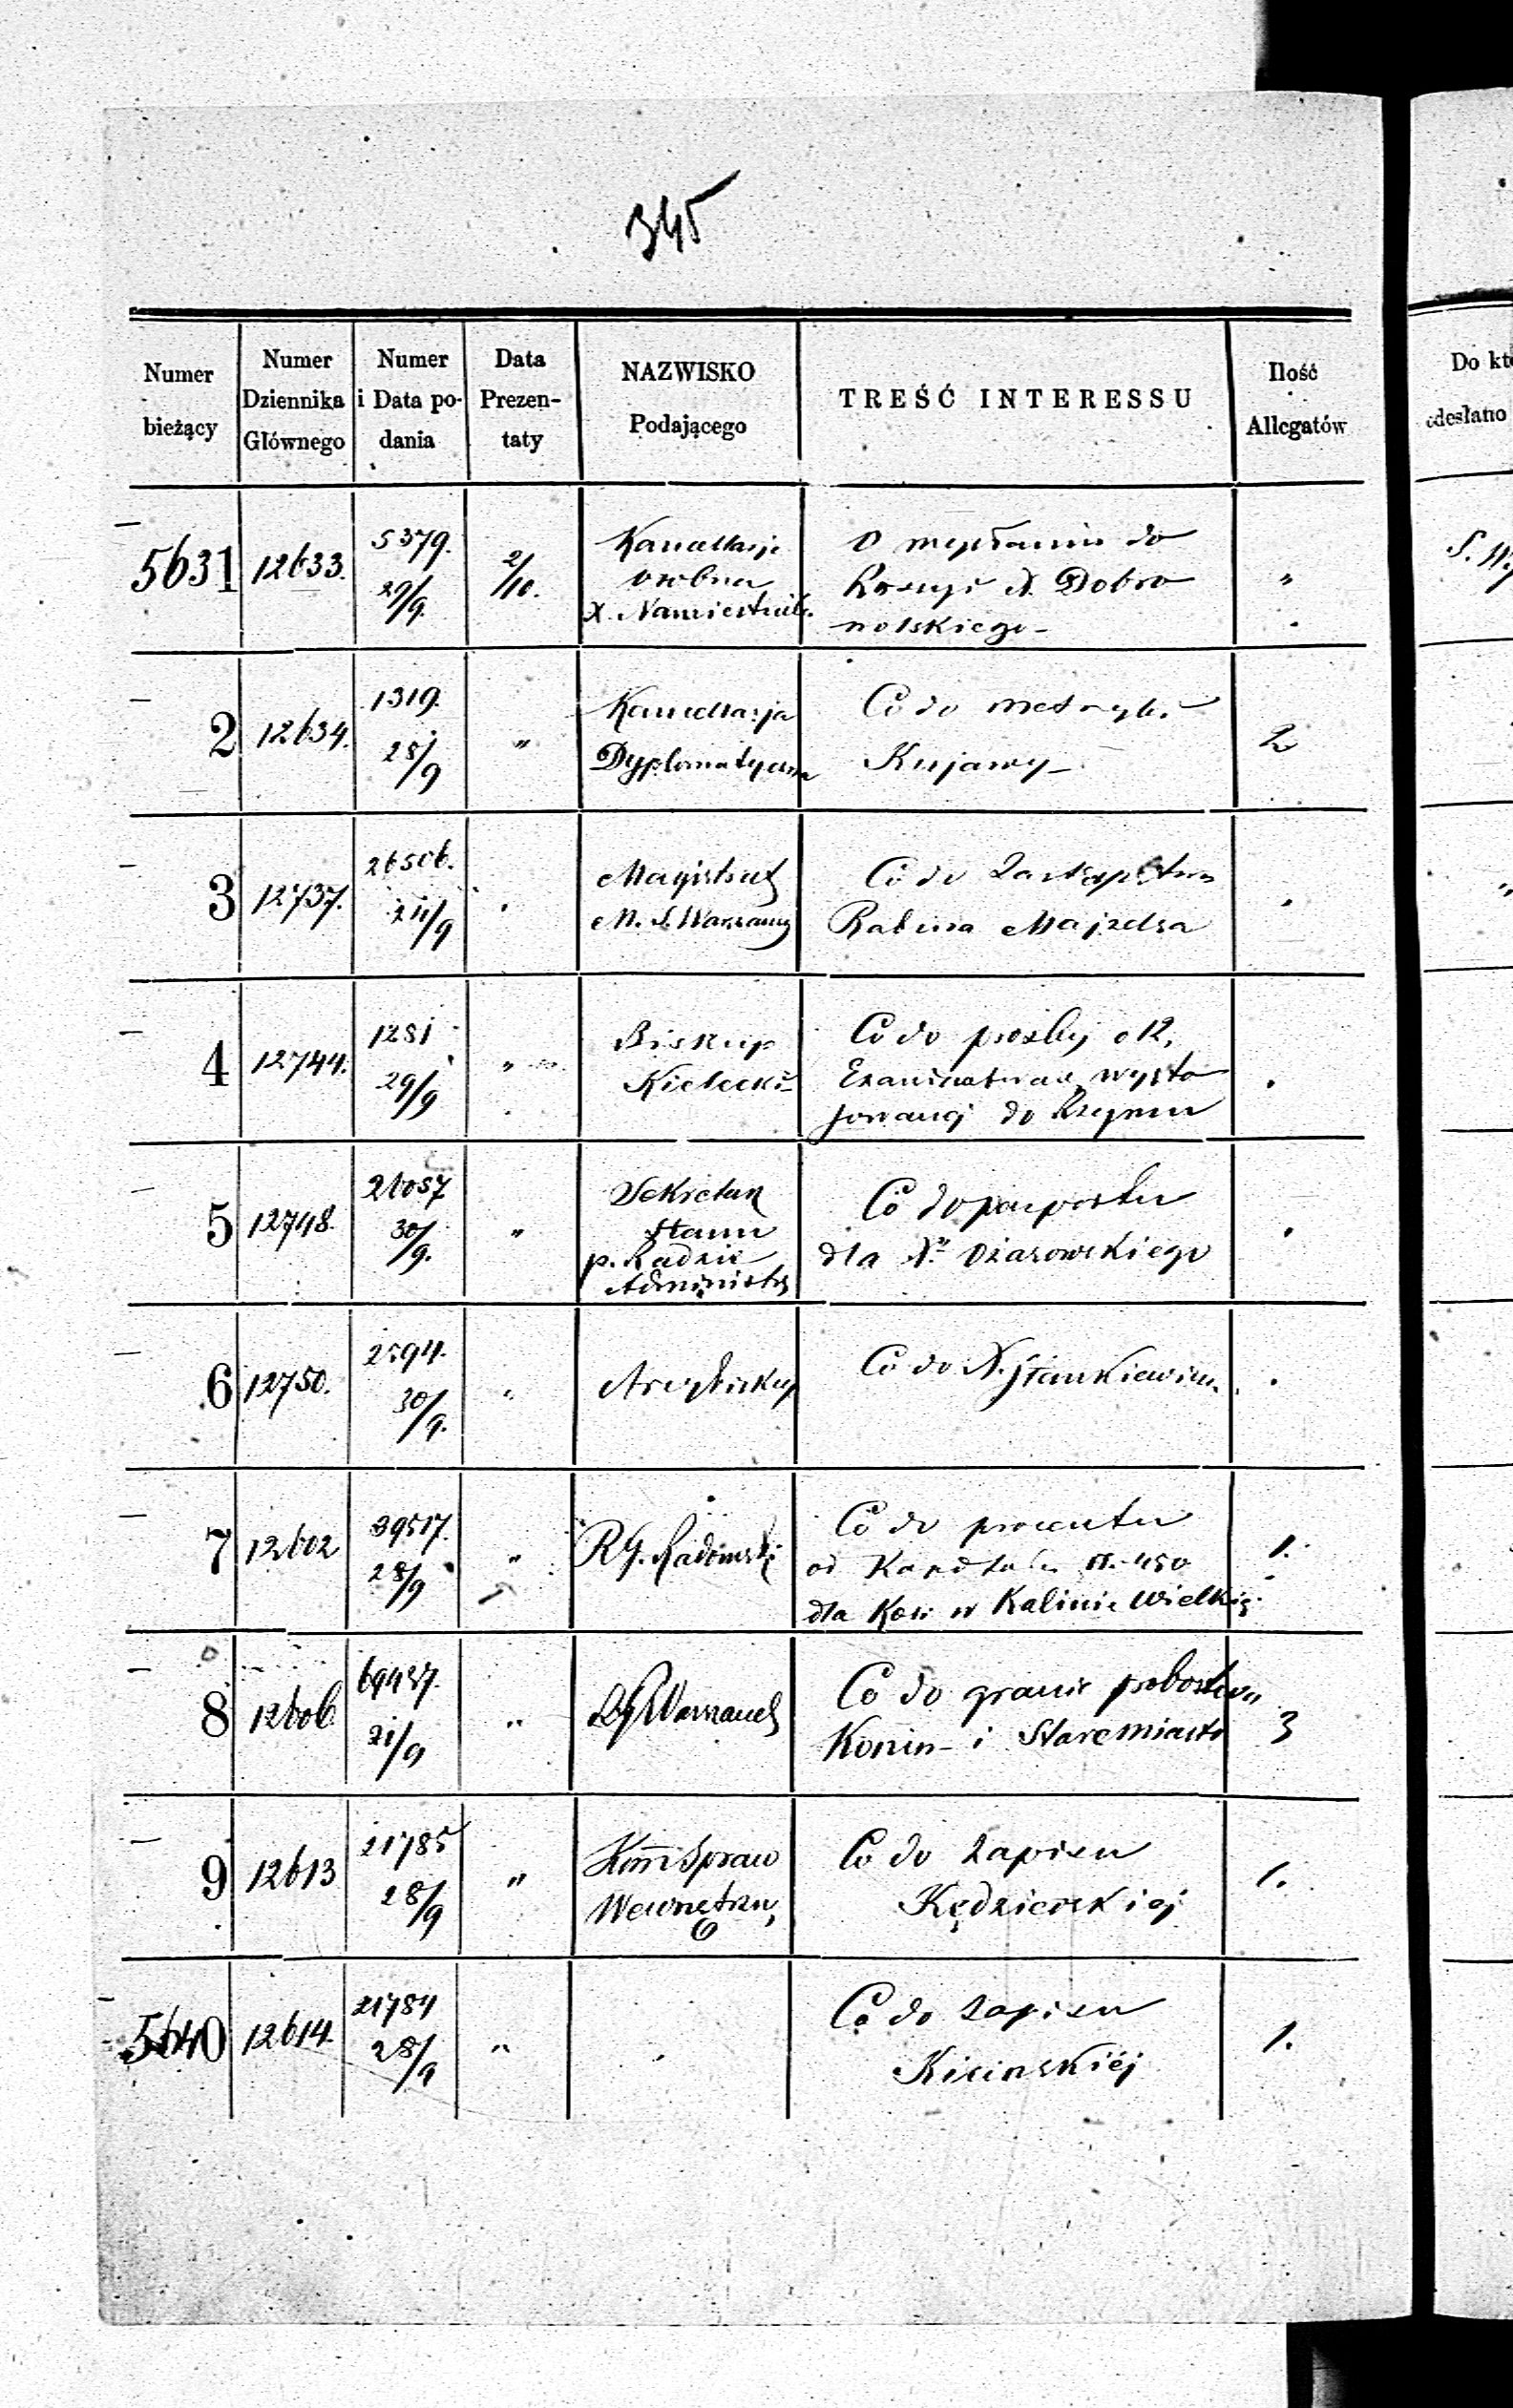 345
Numer bieżący
Numer Dziennika Głównego
Numer i Data podania
Data Prezentaty
NAZWISKO Podającego
TREŚĆ INTERESSU
Ilość Allegatów
Do kt
odesłano
5631 12633. 5379. 29/9. 2/10. Kancellarja O wysłaniu do "
osobna Rossyi X. Dobro
X. Namiestnika. wolskiego - S. W.
2 12634. 1319. 28/9 " Kancellarja Co do metryki 2
Dyplomatyczna Kujawy -
3 12737. 26506. 24/9 Magistrat Co do Zastępstwa
M. S. Warszawy Rabina Majzelsa
4 12744. 1281 29/9 " Biskup Co do prozby o 12.
Kielecki Examinatorów wysto
sowanej do Rzymu
5 12748. 21057 30/9. " Sekretarz Co do paszportu
Stanu dla X. Ożarowskiego
p. Radzie
Administr
6 12750. 2594. 30/9. " Arcybiskup Co do X. Stankiewicza
7 12602 39517. 28/9 " RG. Radomski Co do procentu 1.
od Kapitału rs. 450
dla Kośc w Kalinie Wielkiej
8 12606. 69437. 21/9 " RG Warszawsk Co do granic probostwa 3
Konin - i Staremiasto
9 12613 21785 28/9 " Komm Spraw Co do zapisu 1.
Wewnętrzn Kędzierskiej
5640 12614. 21784 28/9 " Co do zapisu 1.
Kicinskiej